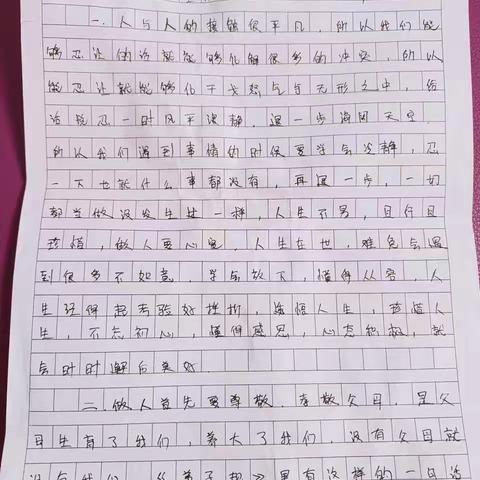 一.人与人的接触很平凡,所以我们能
够忍让的话就能够化解很多的冲突,所以
能忍让就能够化干戈怒气与无形之中,俗
话说忍一时风平浪静.退一步海阔天空.
所以我们遇到事情的时候要学会冷静,忍
一下也就什么事都没有,再退一步,一切
都当做没发生过一样,人生不易,且行且
珍惜,做人要心宽.人生在世,难免会遇
到很多不如意.学会放下,懂得从容,人
生经得起考验好挫折,感悟人生,珍惜人
生,不忘初心,懂得感恩,心态积极,就
会时时邂逅美好.
二.做人首先要尊敬,孝敬父母,是父
母生育了我们,养大了我们,没有父母就
没有我们.《弟子规》里有这样的一句话